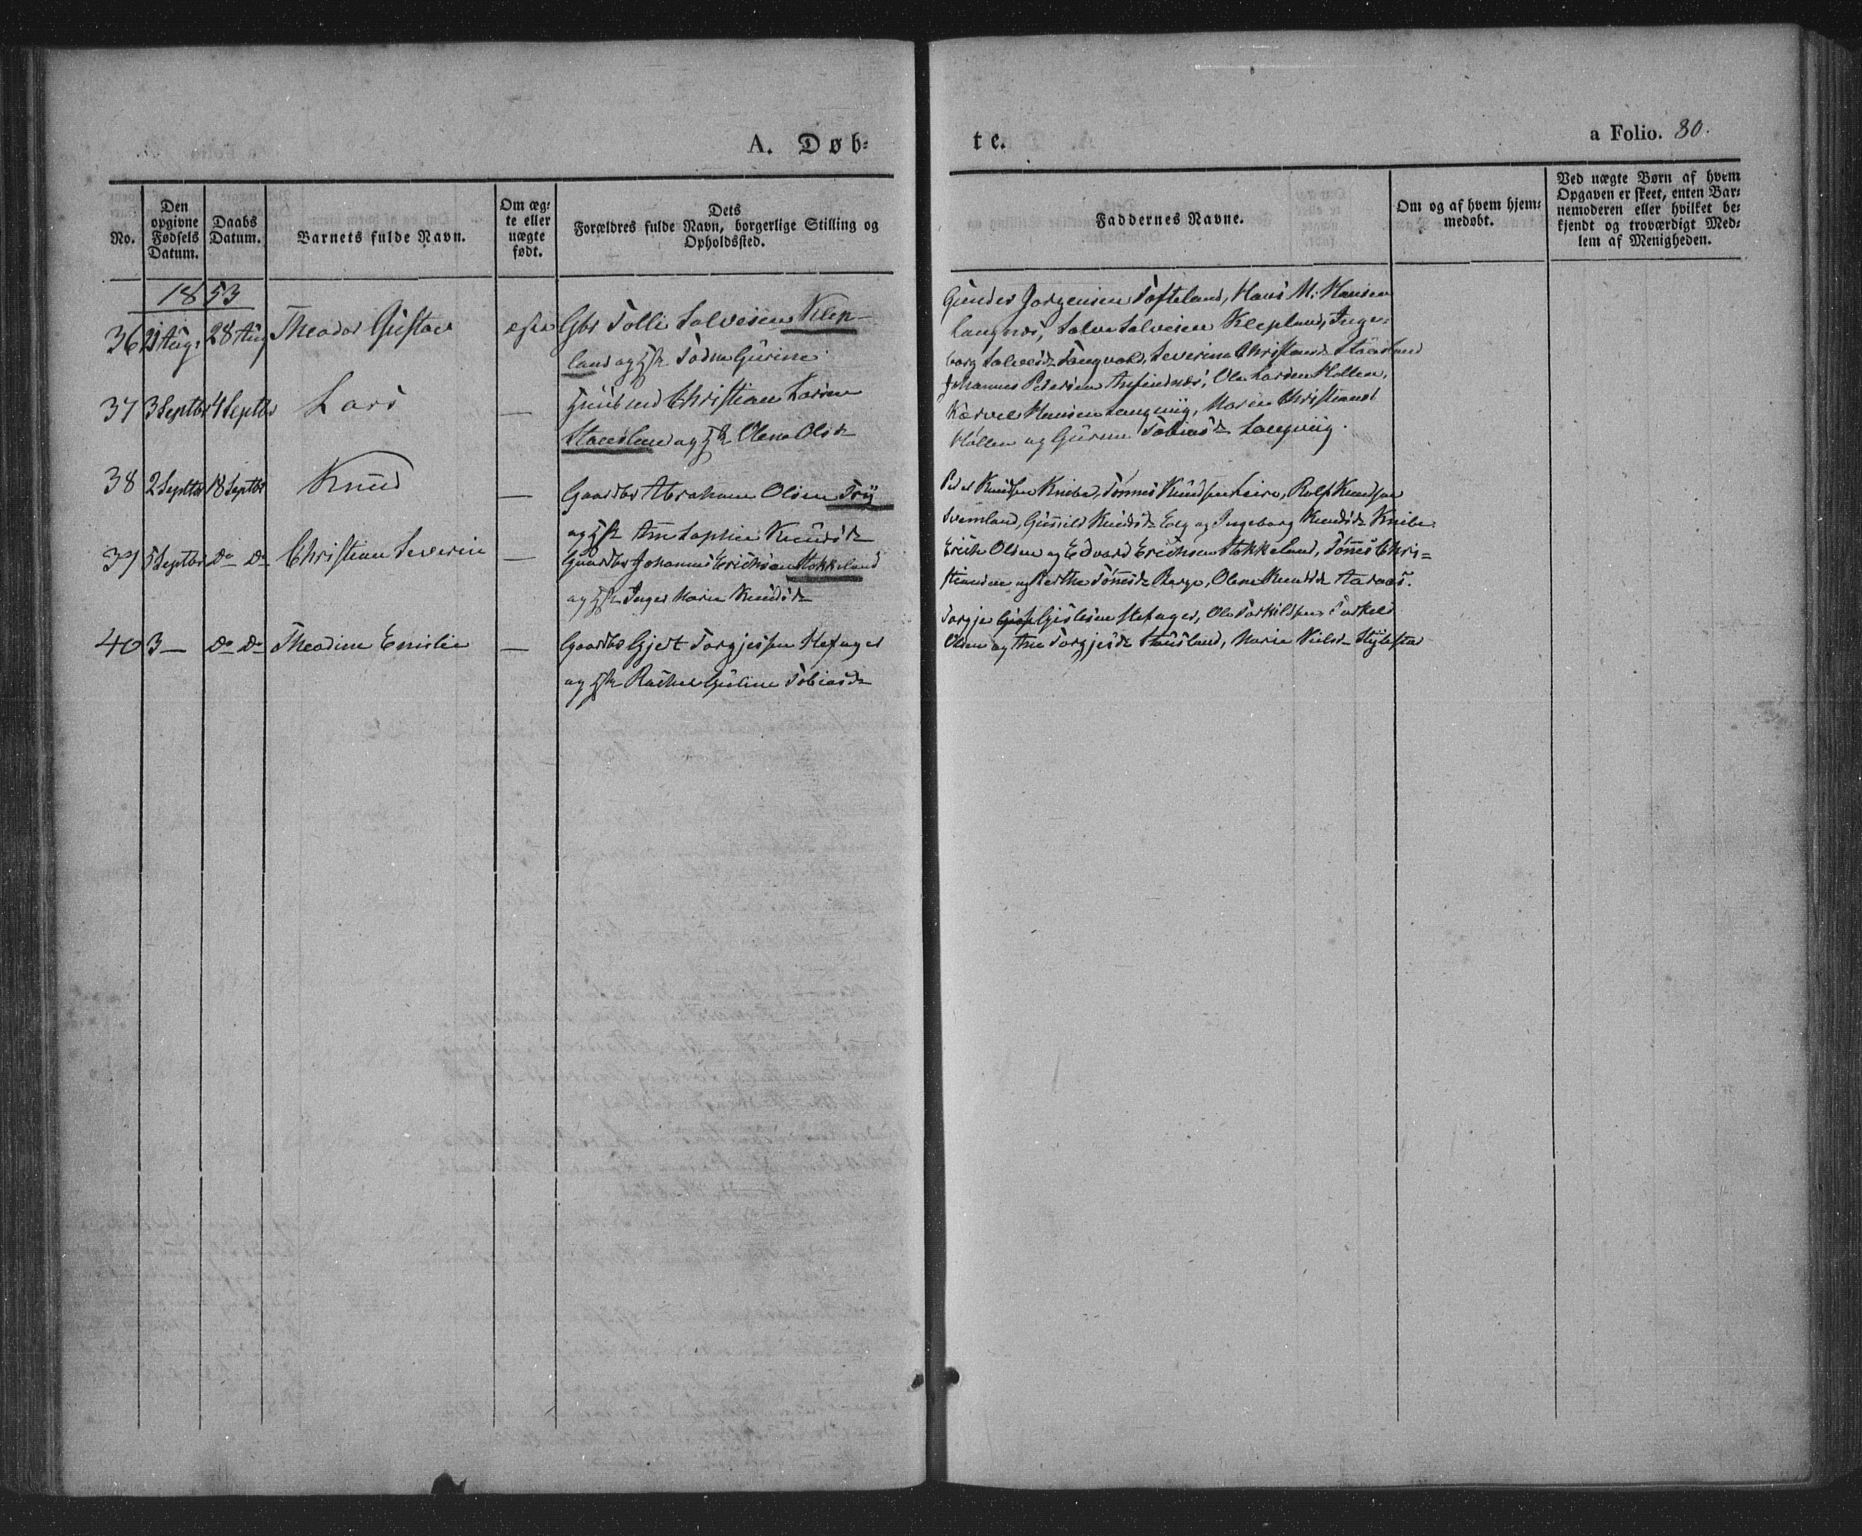 A. Døb-
te.
a Folio. 80.
No.
Den opgivne Fødsels Datum.
Daabs Datum.
Barnets fulde Navn.
Om ægte eller nægte født.
Dets Forældres fulde Navn, borgerlige Stilling og Opholdssted.
Faddernes Navne.
Om og af hvem hjemmedøbt.
Ved nægte Børn af hvem Opgaven er skeet, enten Barnemoderen eller hvilket bekjendt og troværdigt Medlem af Menigheden.
1853
36 21 Aug. 28 Aug Theodor Gustav Gbr Tolli Salvesen Klep-
land og Hst Todne Gurine
Gunder Jorgensen Tofteland, Hans M. Hansen
Langnes, Salve Salvesen Klepland, Inge-
borg Salvesd Tangvald, Severine Christiansd Stausland
37 3 Septbr 4 Septbr Lars — Christian Larsen
Stausland og Hst Olene Olsd
Johannes Petersen Amfindnæs, Ole Larsen Hollen,
Hansen Langviig, Maren Christiansd
Hollen og Gurine Tobiasd Langviig.
38 2 Septbr 18 Septbr Knud — Gaardbr Abraham Olsen Try
og Hst Ane Sophie Knudsd
Peder Knudsen Knibe, Tönnes Knudsen Leire, Rolf Knudsen
Svemland, Gunild Knudsd Eeg og Ingeborg Knudsd Knibe
39 5 Septbr do do Christian Severin — Gaardbr Johannes Erichsen Stokkeland
og Hst Inger Marie Knudsd
Erich Olsen og Edvard Erichsen Stokkeland, Tönnes Chri-
stiansen og Berthe Tönnesd Berge, Olene Knudsd Aaraas.
40 3 — do do Theodine Emilie — Gaardbr Gjert Torgjessen Refager
og Hst Rachel Guline Tobiasd
Torgje Gislesen Refager, Ole Torkildsen, Torkel
Olsen og Ane Torgjesd Stausland, Marie Nielsd